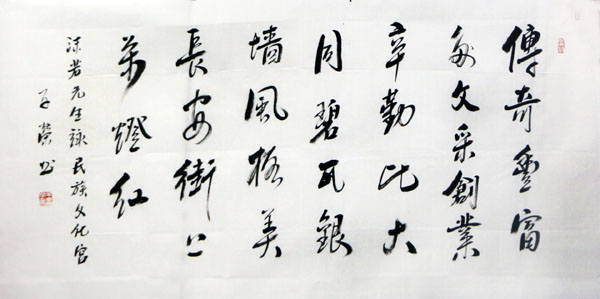 傳奇豐富
多文采創業
辛勤比大
同碧瓦銀
墙風格美
長安街上
萬燈紅
沫若先生詠民族文化宮
子榮书